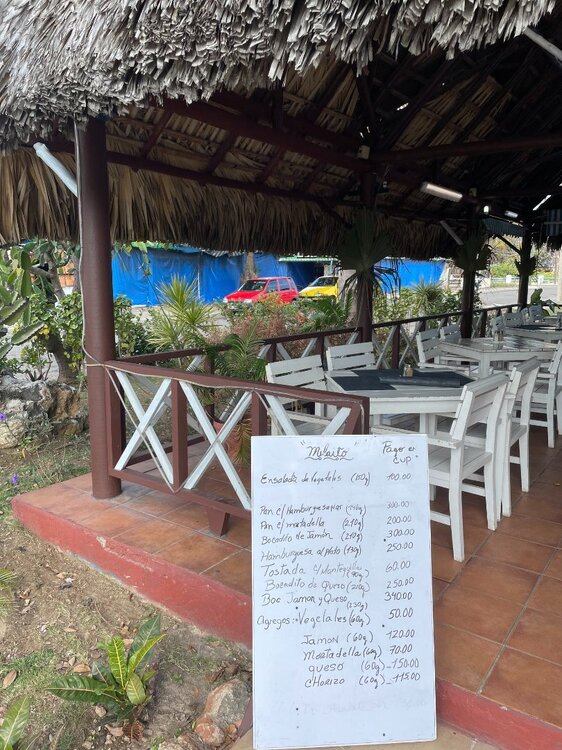 "Melaito" Pago en CUP
Ensalada de Vegetales (100g) 100.00
Pan c/Hamburguesa (240g) 300.00
Pan c/ mortadella (210g) 200.00
Bocadito de Jamón (210g) 300.00
Hamburguesa al plato (130g) 250.00
Tostada c/ Mantequilla (90g) 60.00
Bocadito de Queso (210g) 250.00
Boc Jamon y Queso (230g) 340.00
Agregos:- Vegetales (60g) 50.00
Jamón (60g) 120.00
Mortadella (60g) 70.00
queso (60g) - 150.00
CHORIZO (60g) - 115.00